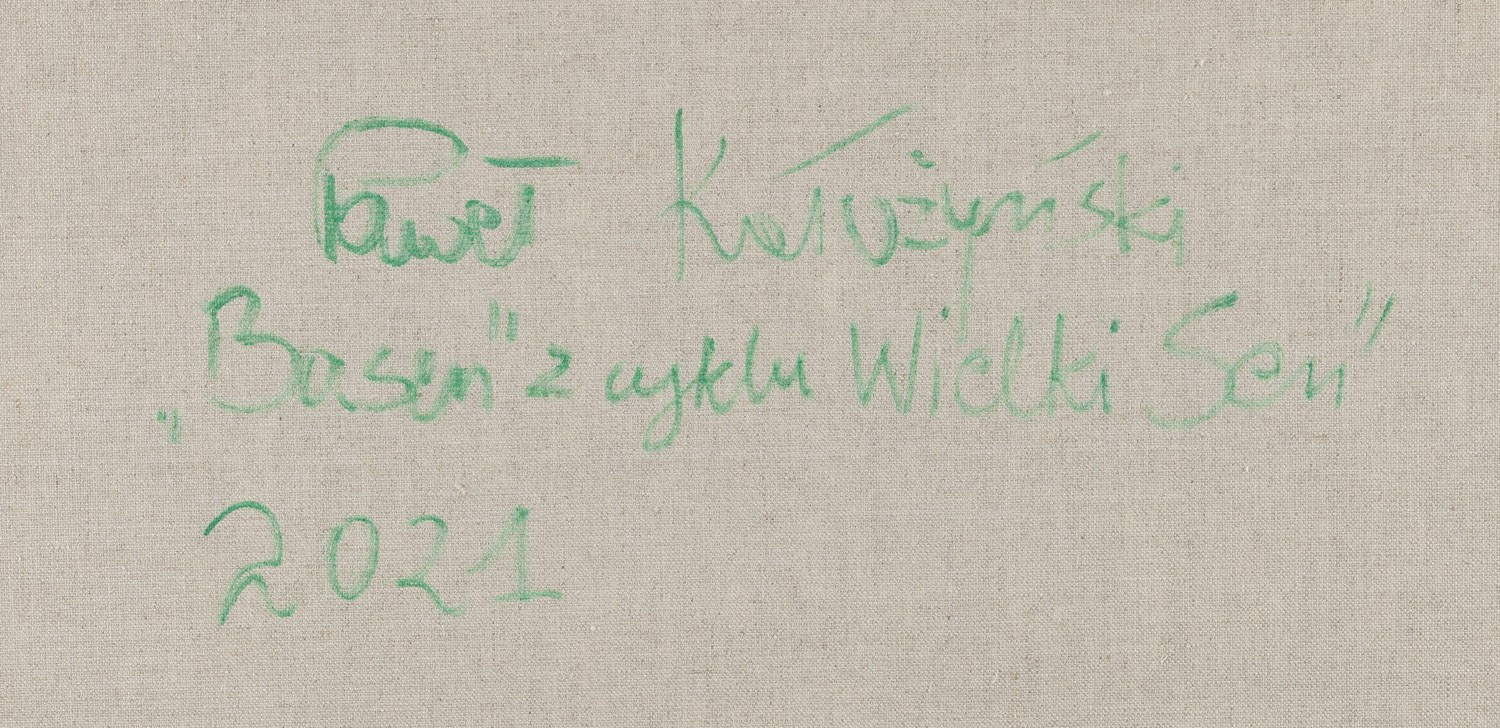 Paweł Kałużyński
„Basen” z cyklu Wielki Sen”
2021